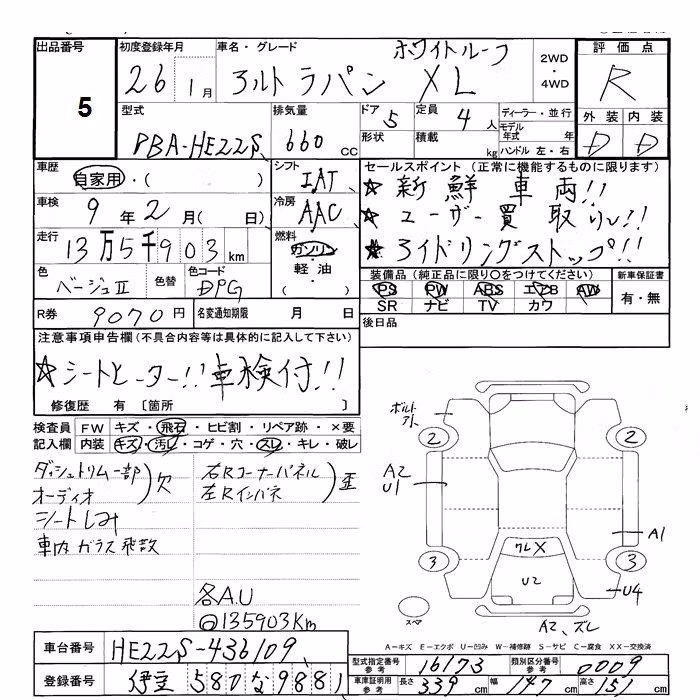 出品番号 初度登録年月 車名・グレード 評価点
5
26 1月 アルトラパン ホワイトルーフ XL 2WD・4WD R
型式 排気量 ドア 5 定員 4人 ディーラー・並行 外装 内装
PBA-HE22S 660 cc 形状 積載 kg モデル年式 年 ハンドル 左・右 D D
車歴 自家用・( ) シフト IAT
車検 9年2月( 日) 冷房 AAC
走行 13万5千903km 燃料 ガソリン 軽油・( )
色 ベージュII 色替 色コード DPG
R券 9070円 名変通知期限 月 日
セールスポイント(正常に機能するものに限ります)
☆新鮮車両!!
☆ユーザー買取りい!!
☆アイドリングストップ!!
装備品(純正品に限り○をつけてください) 新車保証書
PS PW ABS エアB AW 有・無
SR ナビ TV カワ
後日品
注意事項申告欄(不具合内容等は具体的に記入して下さい)
☆シートヒーター!!車検付!!
修復歴 有〔箇所 〕
検査員 FW キズ・飛石・ヒビ割・リペア跡・×要
記入欄 内装 キズ・汚レ・コゲ・穴・スレ・キレ・破レ
ダッシュトリム一部
オーディオ )欠
シートしみ
車内ガラス飛散
右Rコーナーパネル
左Rインパネ )歪
各A.U
◎135903Km
ボルト
2 2
A2
U1
A1
ワレX
3 3
U2
U4
スペア
A2、ズレ
A-キズ E-エクボ U-凹み W-補修跡 S-サビ C-腐食 XX-交換済
車台番号 HE22S-436109
登録番号 伊豆 580 な 9881
型式指定番号 参考 16173 類別区分番号 参考 0009
車庫証明用 参考 長さ 339cm 幅 147cm 高さ 151cm